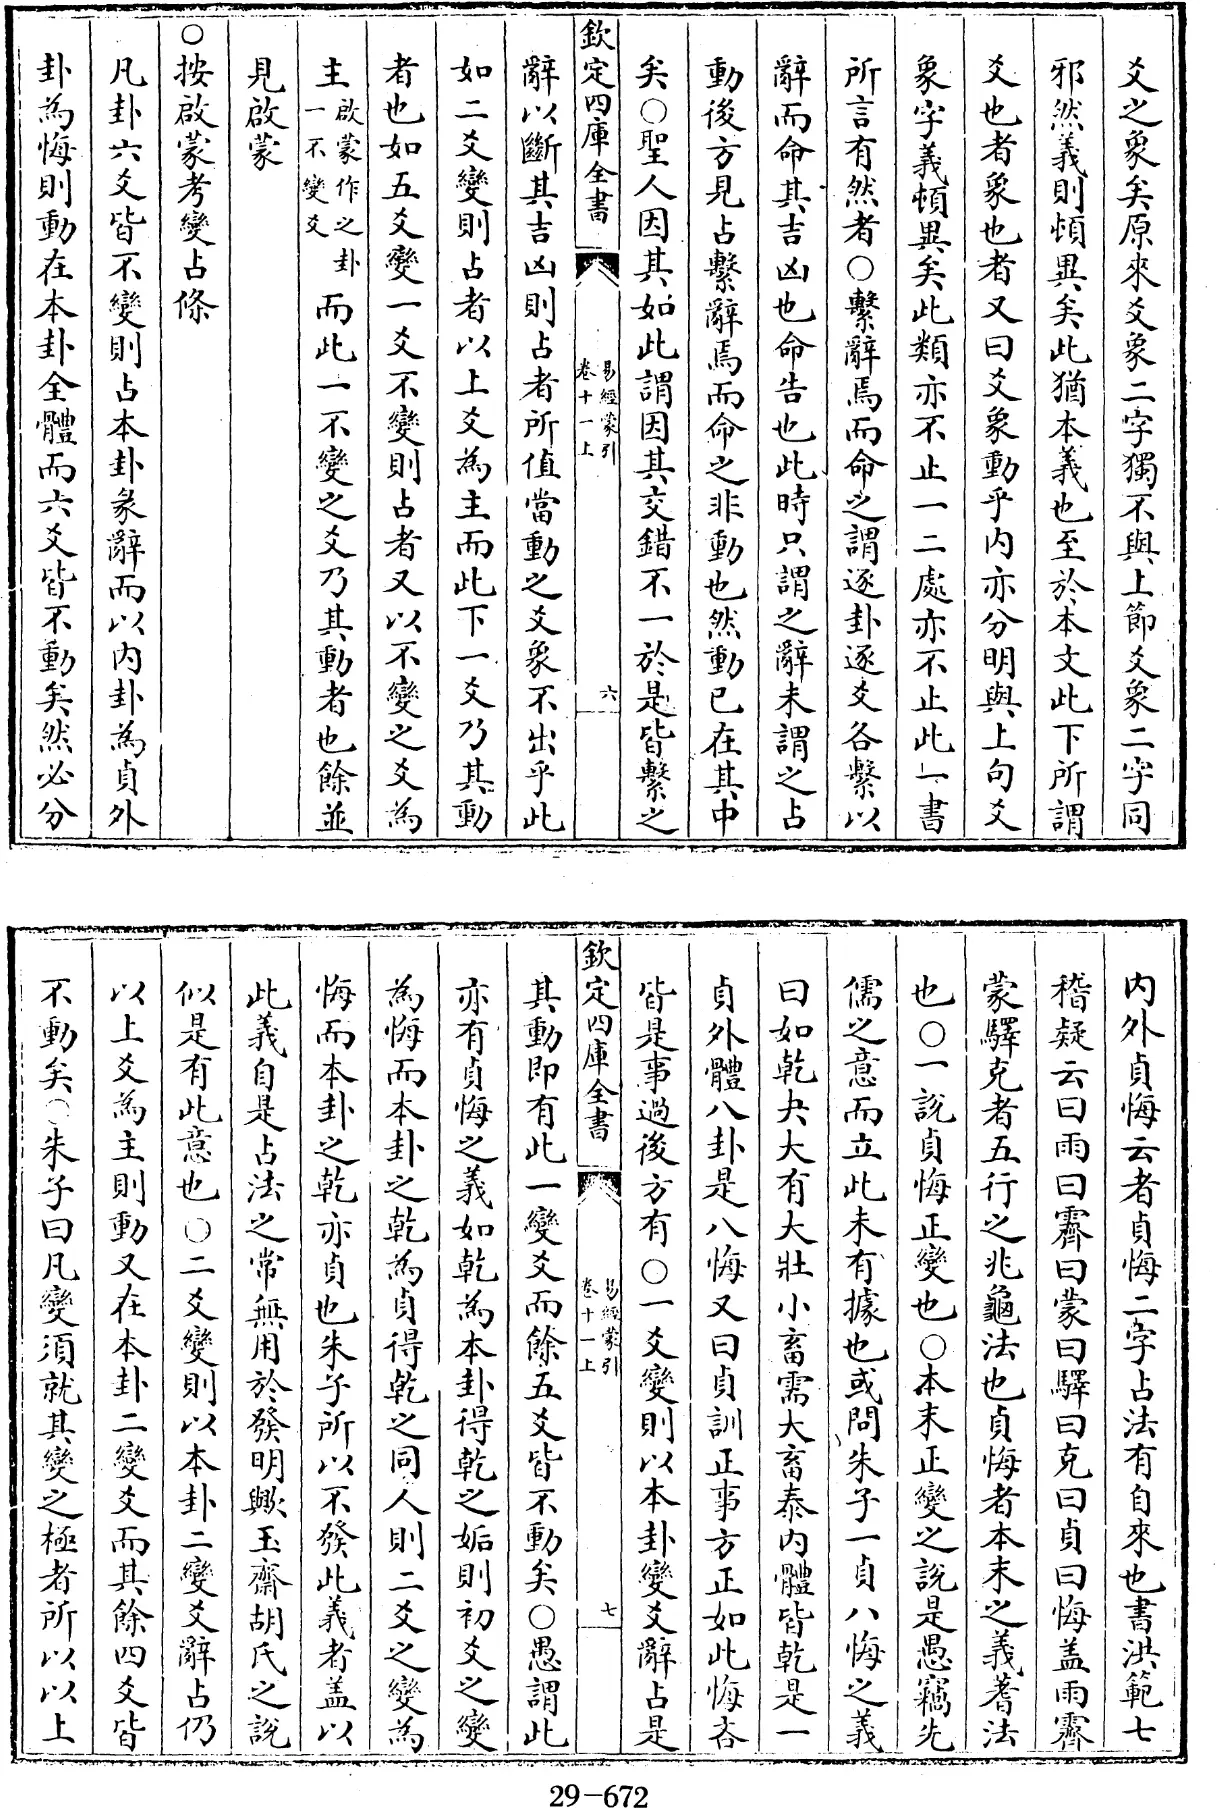 爻之象矣原來爻象二字獨不與上節爻象二字同
邪然義則頓異矣此猶本義也至於本文此下所謂
爻也者象也者又曰爻象動乎内亦分明與上句爻
象字義頓異矣此類亦不止一二處亦不止此一書
所言有然者○繫辭焉而命之謂逐卦逐爻各繫以
辭而命其吉凶也命告也此時只謂之辭未謂之占
動後方見占繫辭焉而命之非動也然動已在其中
矣○聖人因其如此謂因其交錯不一於是皆繫之
欽定四庫全書
易經蒙引
卷十一上
六
辭以斷其吉凶則占者所值當動之爻象不出乎此
如二爻變則占者以上爻為主而此下一爻乃其動
者也如五爻變一爻不變則占者又以不變之爻為
主啟蒙作之卦一不變爻而此一不變之爻乃其動者也餘並
見啟蒙
○按啟蒙考變占條
凡卦六爻皆不變則占本卦彖辭而以内卦為貞外
卦為悔則動在本卦全體而六爻皆不動矣然必分
内外貞悔云者貞悔二字占法有自來也書洪範七
稽疑云曰雨曰霽曰蒙曰驛曰克曰貞曰悔盖雨霽
蒙驛克者五行之兆龜法也貞悔者本末之義蓍法
也○一說貞悔正變也○本末正變之說是愚竊先
儒之意而立此未有據也或問朱子一貞八悔之義
曰如乾夬大有大壯小畜需大畜泰内體皆乾是一
貞外體八卦是八悔又曰貞訓正事方正如此悔吝
皆是事過後方有○一爻變則以本卦變爻辭占是
欽定四庫全書
易經蒙引
卷十一上
七
其動即有此一變爻而餘五爻皆不動矣○愚謂此
亦有貞悔之義如乾為本卦得乾之姤則初爻之變
為悔而本卦之乾為貞得乾之同人則二爻之變為
悔而本卦之乾亦貞也朱子所以不發此義者盖以
此義自是占法之常無用於發明歟玉齋胡氏之說
似是有此意也○二爻變則以本卦二變爻辭占仍
以上爻為主則動又在本卦二變爻而其餘四爻皆
不動矣○朱子曰凡變須就其變之極者所以以上
29-672